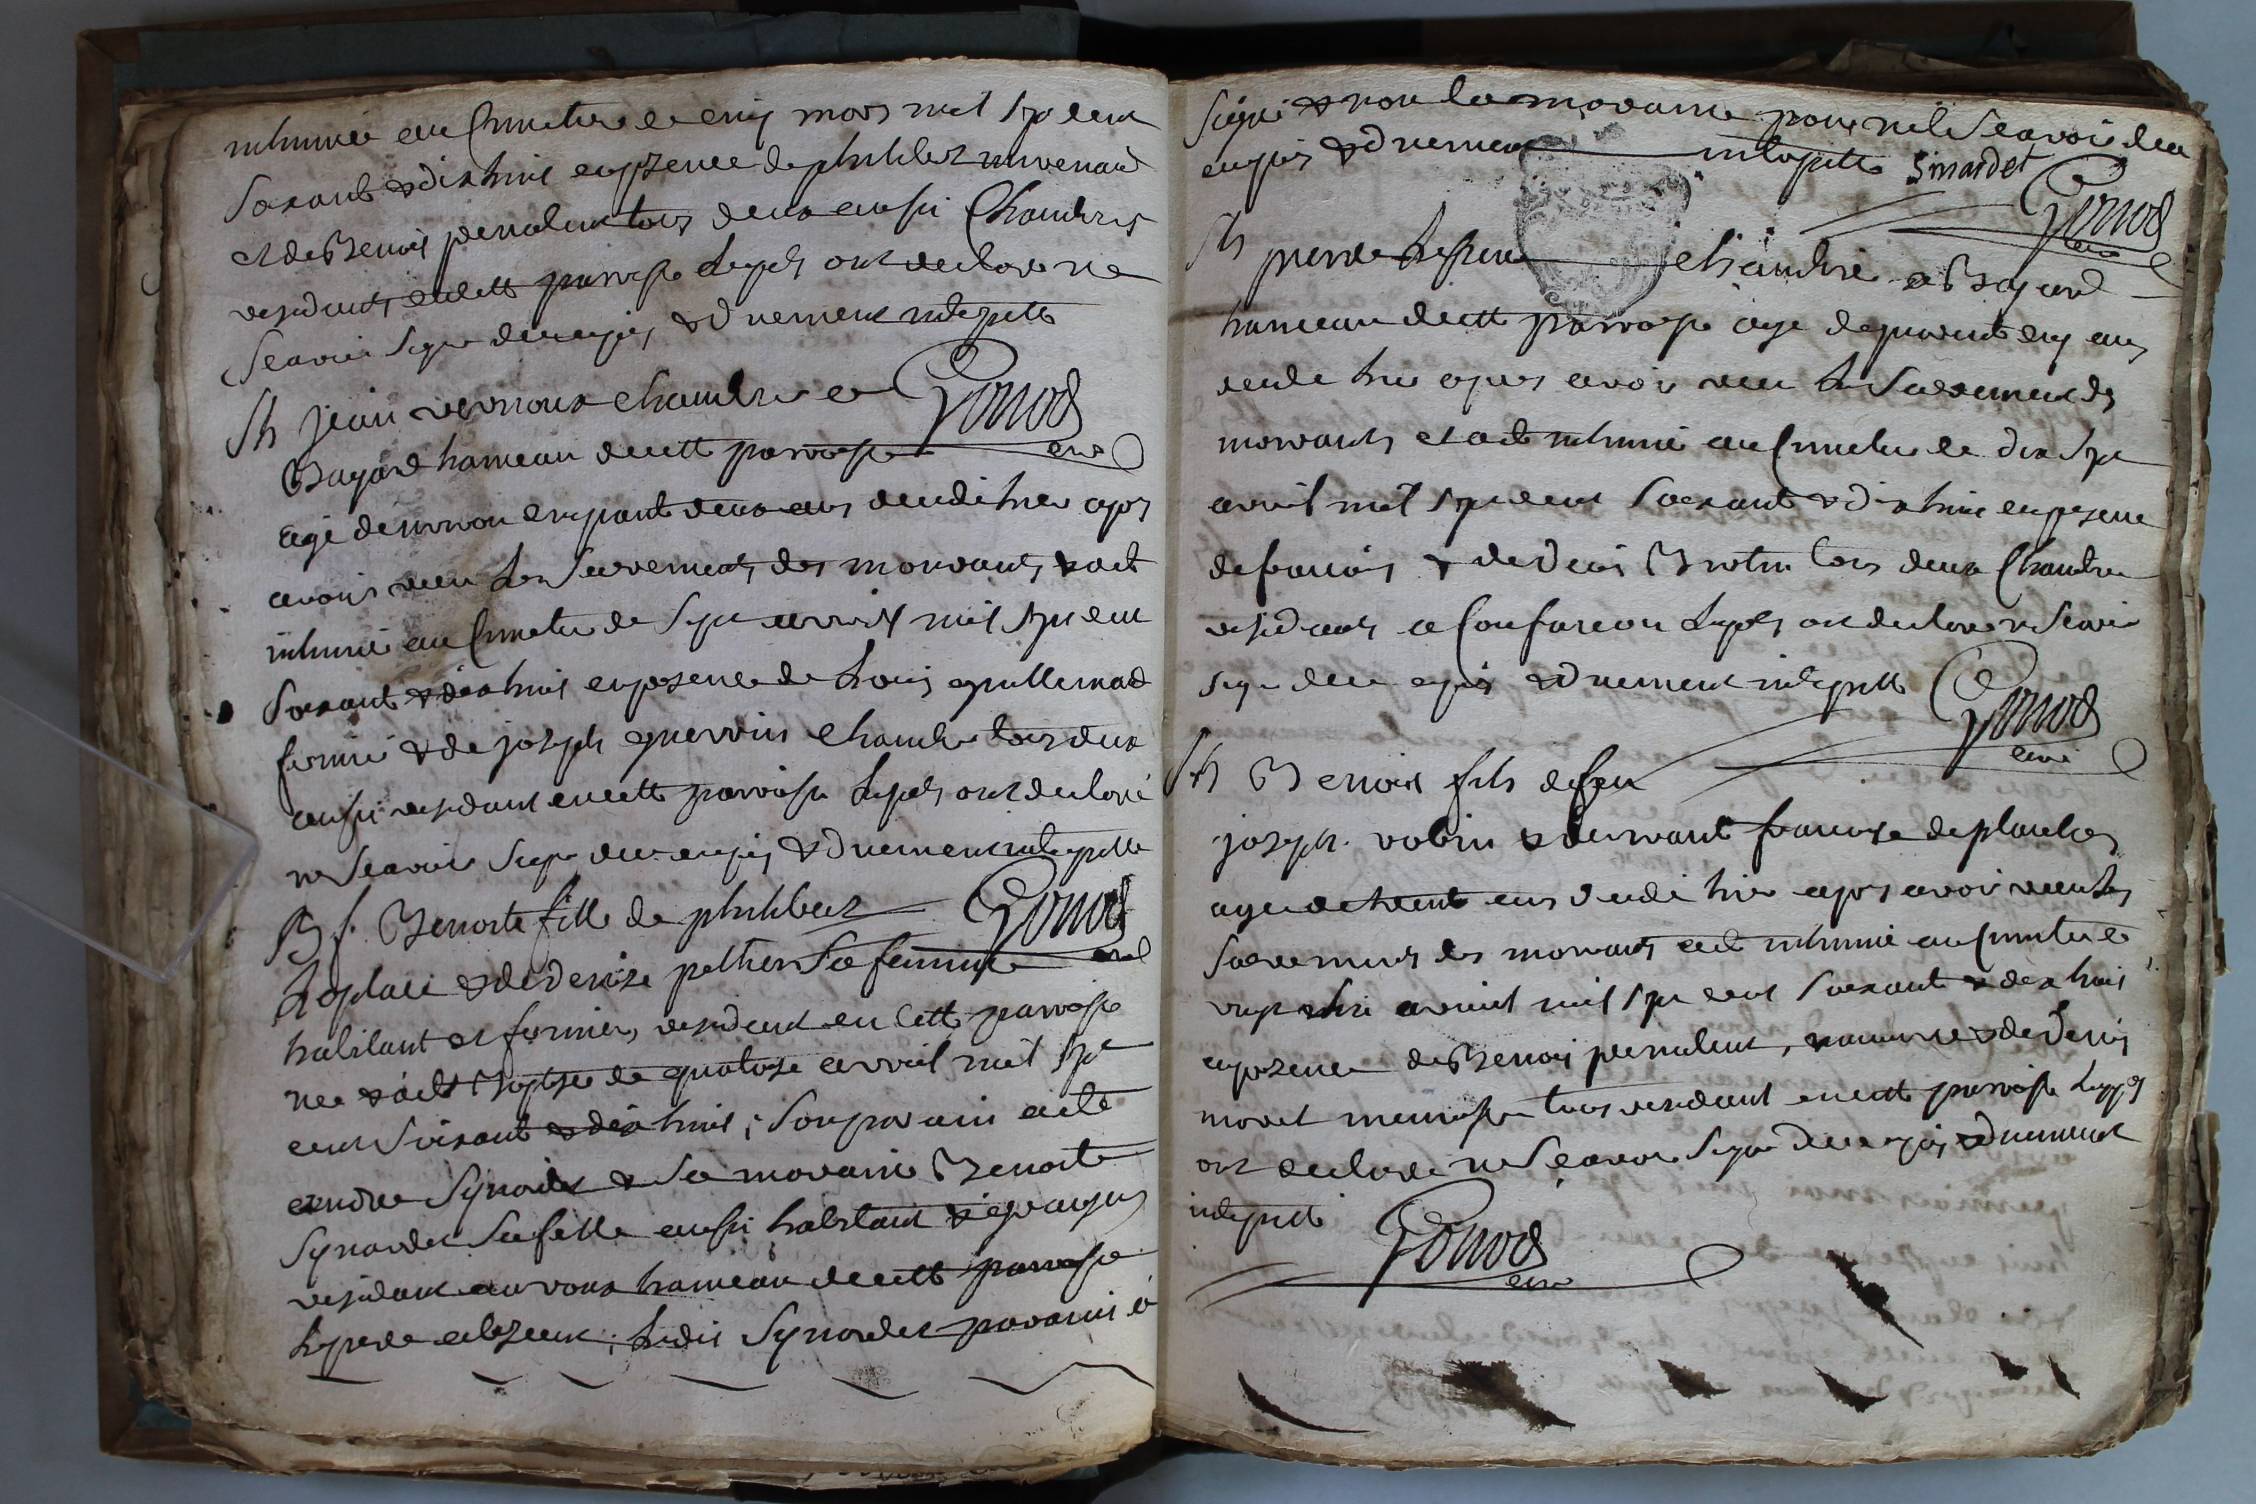 inhumé au Cimetiere le cinq mars mil sept cent
soixante & dix huit en presence de philibert
et de Benois pernodent tous deux aussi Chaudrés
residents en cette paroisse lesquels ont declare ne
scavoir signe de ce enquis & duement interpellé
Sh jean vernoux chaudre a Gonod
Bayard hameau de cette paroisse curé
agé d'environ cinquante deux ans decedé hier apres
avoir reçu les Sacrements des mourants & a eté
inhumé au Cimetiere le sept avril mil sept cent
soixante & dix huit en presence de Louis guillemad
fermié & de joseph guerrin Chaudre tous deux
aussi residant en cette paroisse lesquels ont declaré
ne scavoir signe de ce enquis & duement interpellé
B f. Benoite fille de philibert Gonod
Leplace & de denize pether sa femme curé
habitant et fermier, residant en cette paroisse
née & a eté Baptisé le quatorze avril mil sept
cent soixante & dix huit; son parain a eté
andre Synardet & sa maraine Benoite
Synardet sa fille aussi habitant &
residant au voux hameau de cette paroisse
le pere absent; ledit Synardet parain à
signé & non la maraine pour ne le scavoir de ce
enquis & duement interpellé Sinardet
Gonod
curé
Sh pierre chaudre a Bayard
hameau de cette paroisse age de quarente cinq ans
decedé hier apres avoir reçu les Sacrements des
mourants et a eté inhumé au Cimetiere le dix sept
avril mil sept cent soixante & dix huit en presence
de francois & de denis Brotin tous deux Chaudre
residents a Confrancon lesquels ont declaré ne scavoir
signe de ce enquis & duement interpellé Gonod
curé
Sh Benois fils de feu
joseph robin & de vivante francoise deplanche
age de trente ans decedé hier apres avoir reçu les
sacrements des mourants a eté inhumé au Cimetiere le
vingt avril mil sept cent soixante & dix huit
en presence de Benois pernodent, & de denis
morel tous residant en cette paroisse lesquels
ont declare ne scavoir signe de ce enquis & duement
interpellé Gonod
curé